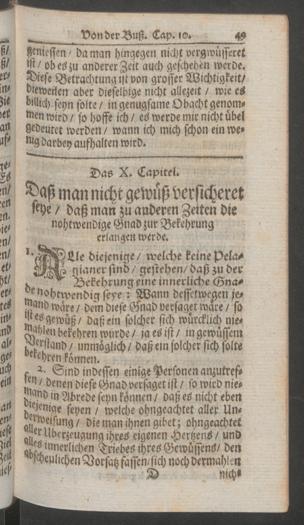 Von der Buß. Cap. 10. 49
geniessen / da man hingegen nicht vergwüsseret
ist / ob es zu anderer Zeit auch geschehen werde.
Diese Betrachtung ist von grosser Wichtigkeit /
dieweilen aber dieselbige nicht allezeit / wie es
billich seyn solte / in genugsame Obacht genom-
men wird / so hoffe ich / es werde mir nicht übel
gedeutet werden / wann ich mich schon ein we-
nig darbey aufhalten wird.
Das X. Capitel.
Daß man nicht gewüß versicheret
seye / daß man zu anderen Zeiten die
nohtwendige Gnad zur Bekehrung
erlangen werde.
1. Alle diejenige / welche keine Pela-
gianer sind / gestehen / daß zu der
Bekehrung eine innerliche Gna-
de nohtwendig seye: Wann dessetwegen je-
mand wäre / dem diese Gnad versaget wäre / so
ist es gewüß / daß ein solcher sich würcklich nie-
mahlen bekehren wurde / ja es ist / in gewüssem
Verstand / unmöglich / daß ein solcher sich solte
bekehren können.
2. Sind indessen einige Personen anzutref-
fen / denen diese Gnad versaget ist / so wird nie-
mand in Abrede seyn können / daß es nicht eben
diejenige seyen / welche ohngeachtet aller Un-
derweisung / die man ihnen gibet; ohngeachtet
aller Uberzeugung ihres eigenen Hertzens / und
alles innerlichen Triebes ihres Gewüssens / den
abscheulichen Vorsatz fassen / sich noch dermahlen
D nicht